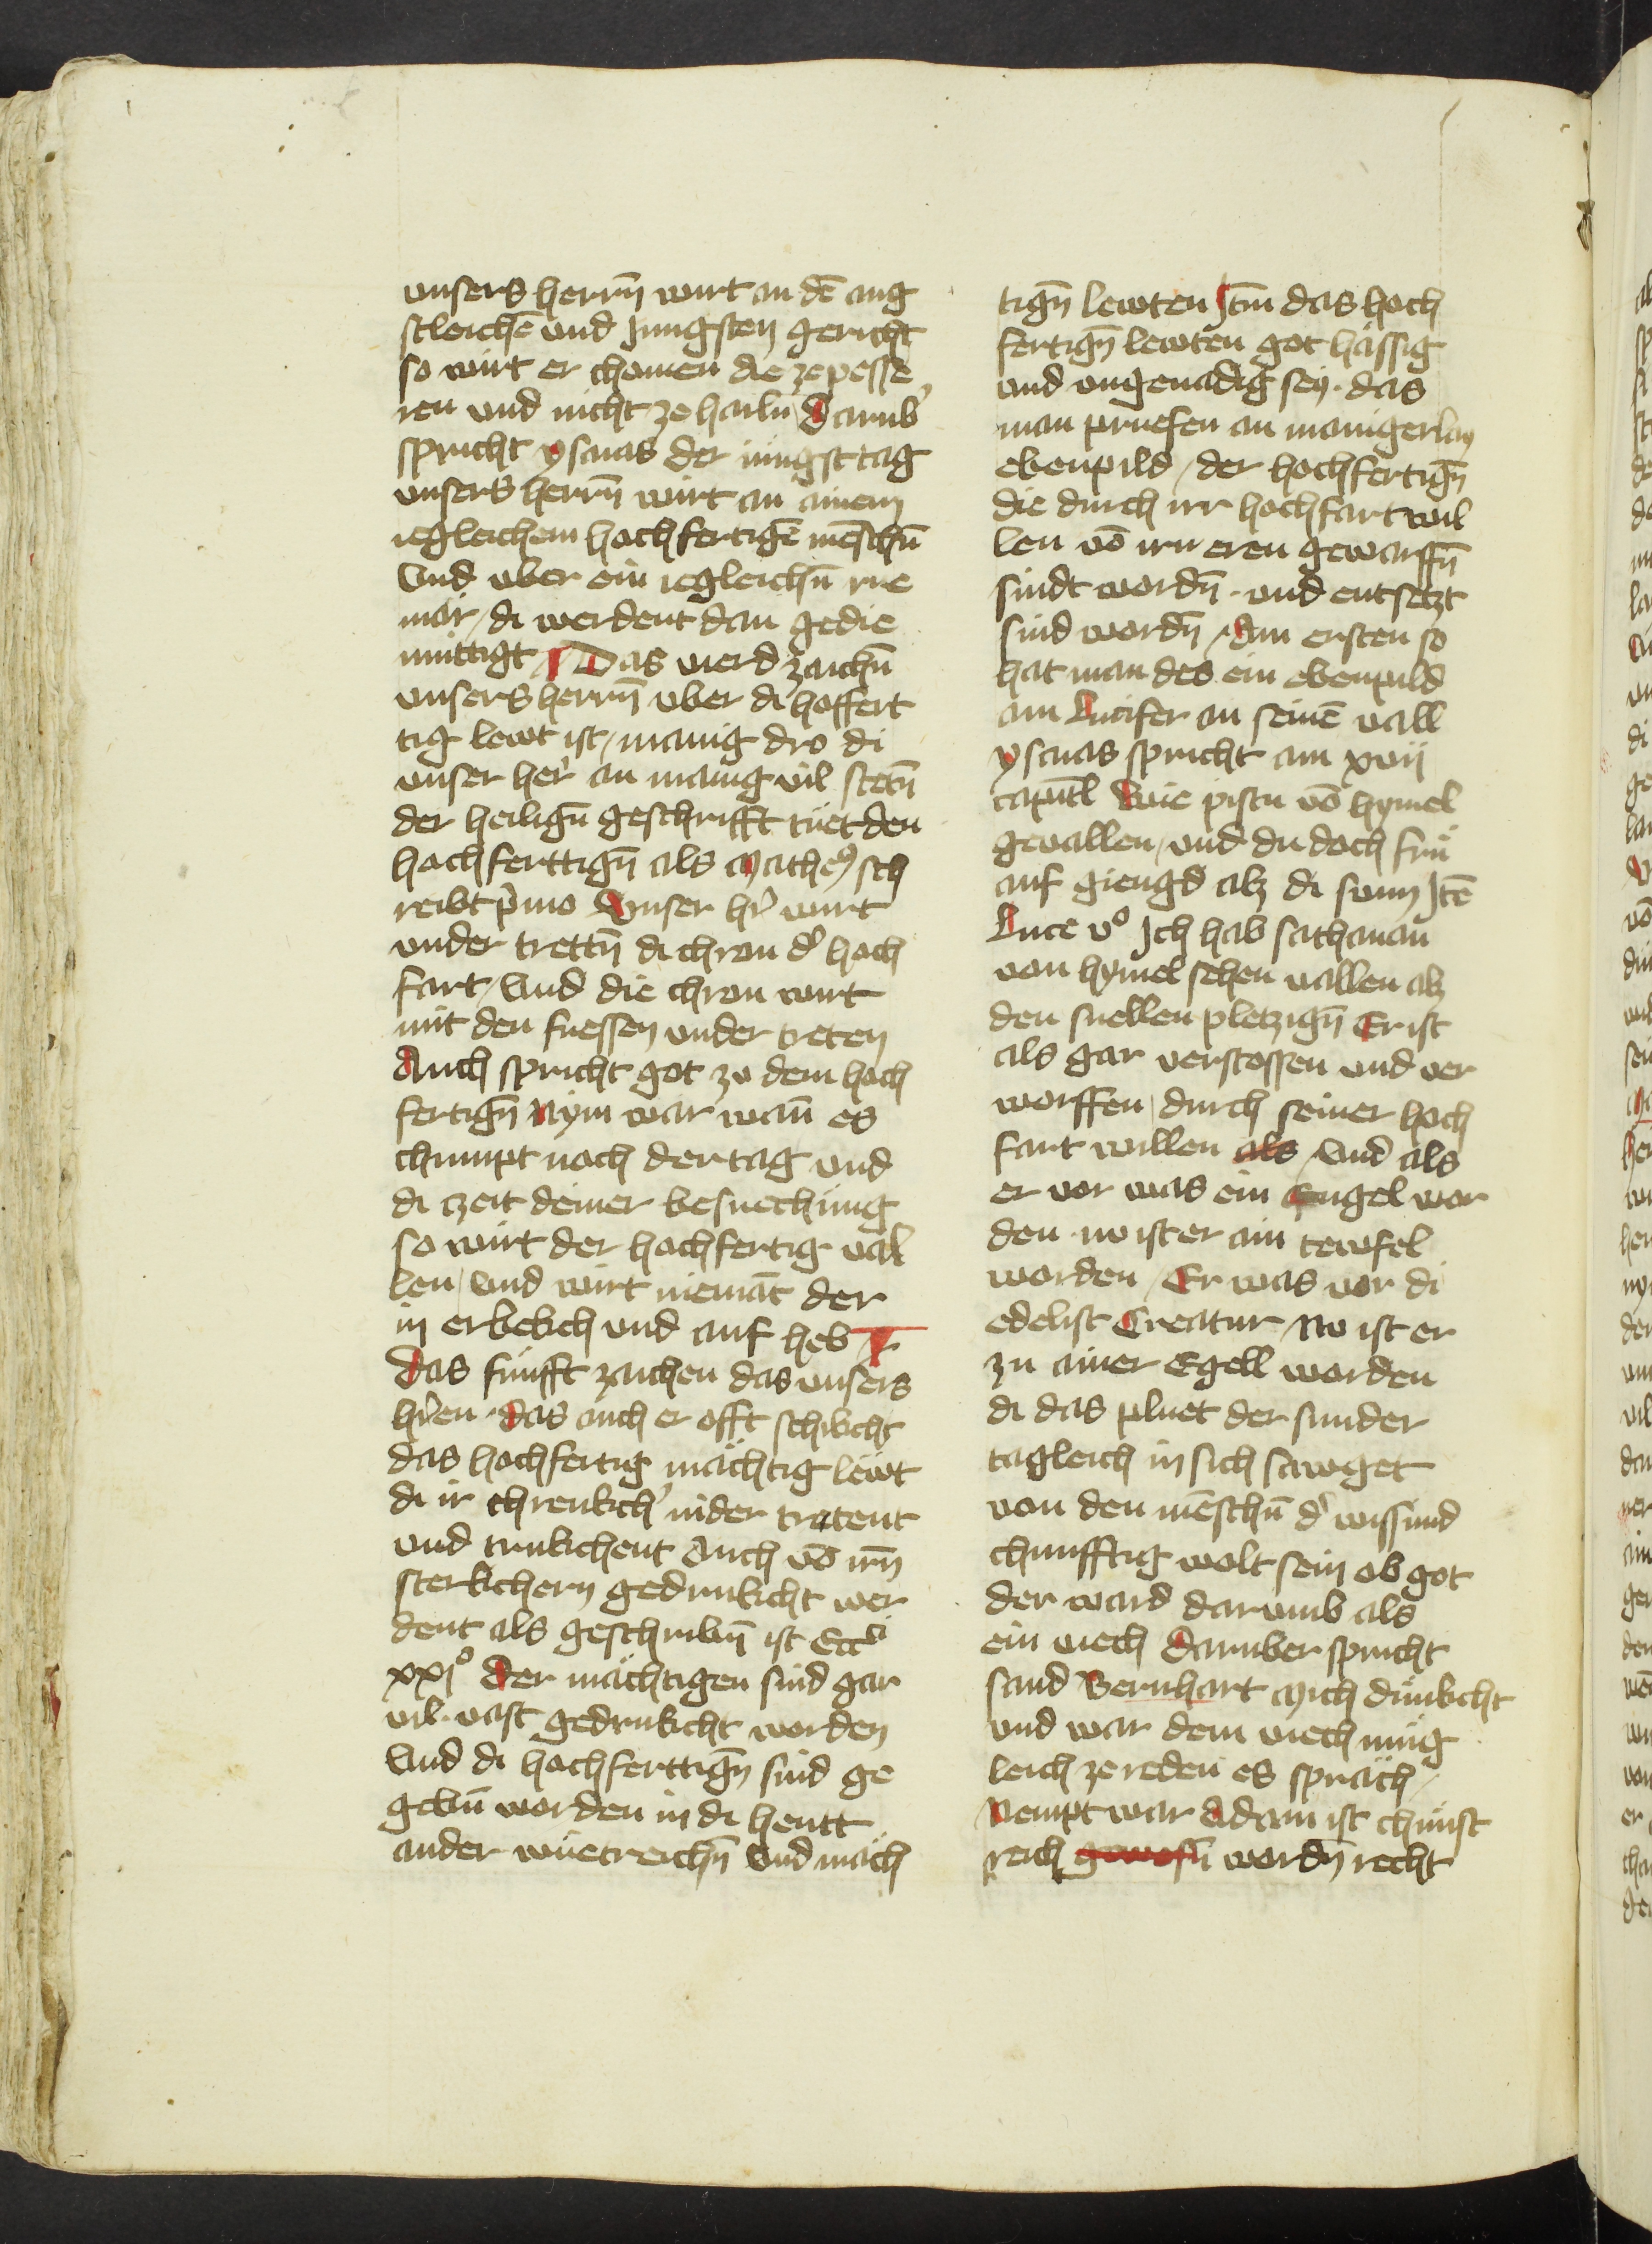 unsers herrn̄ wirt an dē ang
stleichē und Jungsten gericht
so wirt er chomen die ze pesse
ren und nicht ze hailn Darub̓
spricht ysaias der iungst tag
unsers herrn̄ wirt an ainem
iegleichem hochfertigē mēschn̄
Und uber ein iegleichn̄ rue
mär / di werdent dan gedie
muttigt Das vierd zaichn̄
unsers herrn̄ uber di hoffert
tig lewt ist / manig dro di
unser her̓ an manig vil stetn̄
der heilign̄ geschrifft tuet den
hochferttign̄ als Matheꝰ sch
reibt p̓mo Unser hr̓ wirt
under trettn̄ di chron d̓ hoch
fart / Und die chron wirt
mit den fuessen under treten
Auch spricht got zu dem hoch
fertign̄ Nym war wan̄ es
chumpt noch der tag und
di czeit deiner besuechung
so wirt der hochfertig val
len / und wirt niemāt der
in erbekch und auf heb
Das funfft zaichen das unsers
hr̓en · das auch er offt schikcht
das hochfertig mächtig lewt
di ir chrenkch̓ nider tratent
und trukchent Auch vō irn̄
sterkchern gedrukcht wer
dent als geschribn̄ ist Eccti
xxjo Der mächtigen sind gar
vil · vast gedrukcht worden
Und di hochferttign̄ sind ge
gebn̄ worden in di hentt
ander wuetreichn̄ Und mäch
tign̄ lewten Itm̄ das hoch
fertign̄ lewten got hässig
und ungenadig sey · das
man pruefen an manigerlay
ebenpild / der hochfertign̄
die durch irr hochfart wil
len vō irn eren geworffn̄
sindt wordn̄ · und entsetzt
sind wordn̄ / Am ersten so
hat man des ein ebenpild
am Lucifer an seinē vall
ysaias spricht am xvij
capitl Wie pistu vō hymel
gevallen / und du doch frů
auf giengd alz di sunn Itē
Luce vo Ich hab sathanan
von hymel sehen vallen alz
den snellen pletzign̄ Er ist
als gar verstossen und ver
worffen / durch seiner hoch
fart willen als / Und als
er vor was ein Engel wor
den · nv ist er ain tewfel
worden / Er was vor di
edelist Creatur / Nv ist er
zu ainer Egell worden
di das pluet der sunder
tagleich in sich sawget
von den mēschn̄ d̓ wissund
chunfftig wolt sein ob got
der ward darumb als
ein viech Daruber spricht
sand Bernhart Mich dunkcht
und war dem viech mug
leich ze reden es spräch /
Nempt war Adam ist chunst
reich gewesn̄ wordn̄ recht